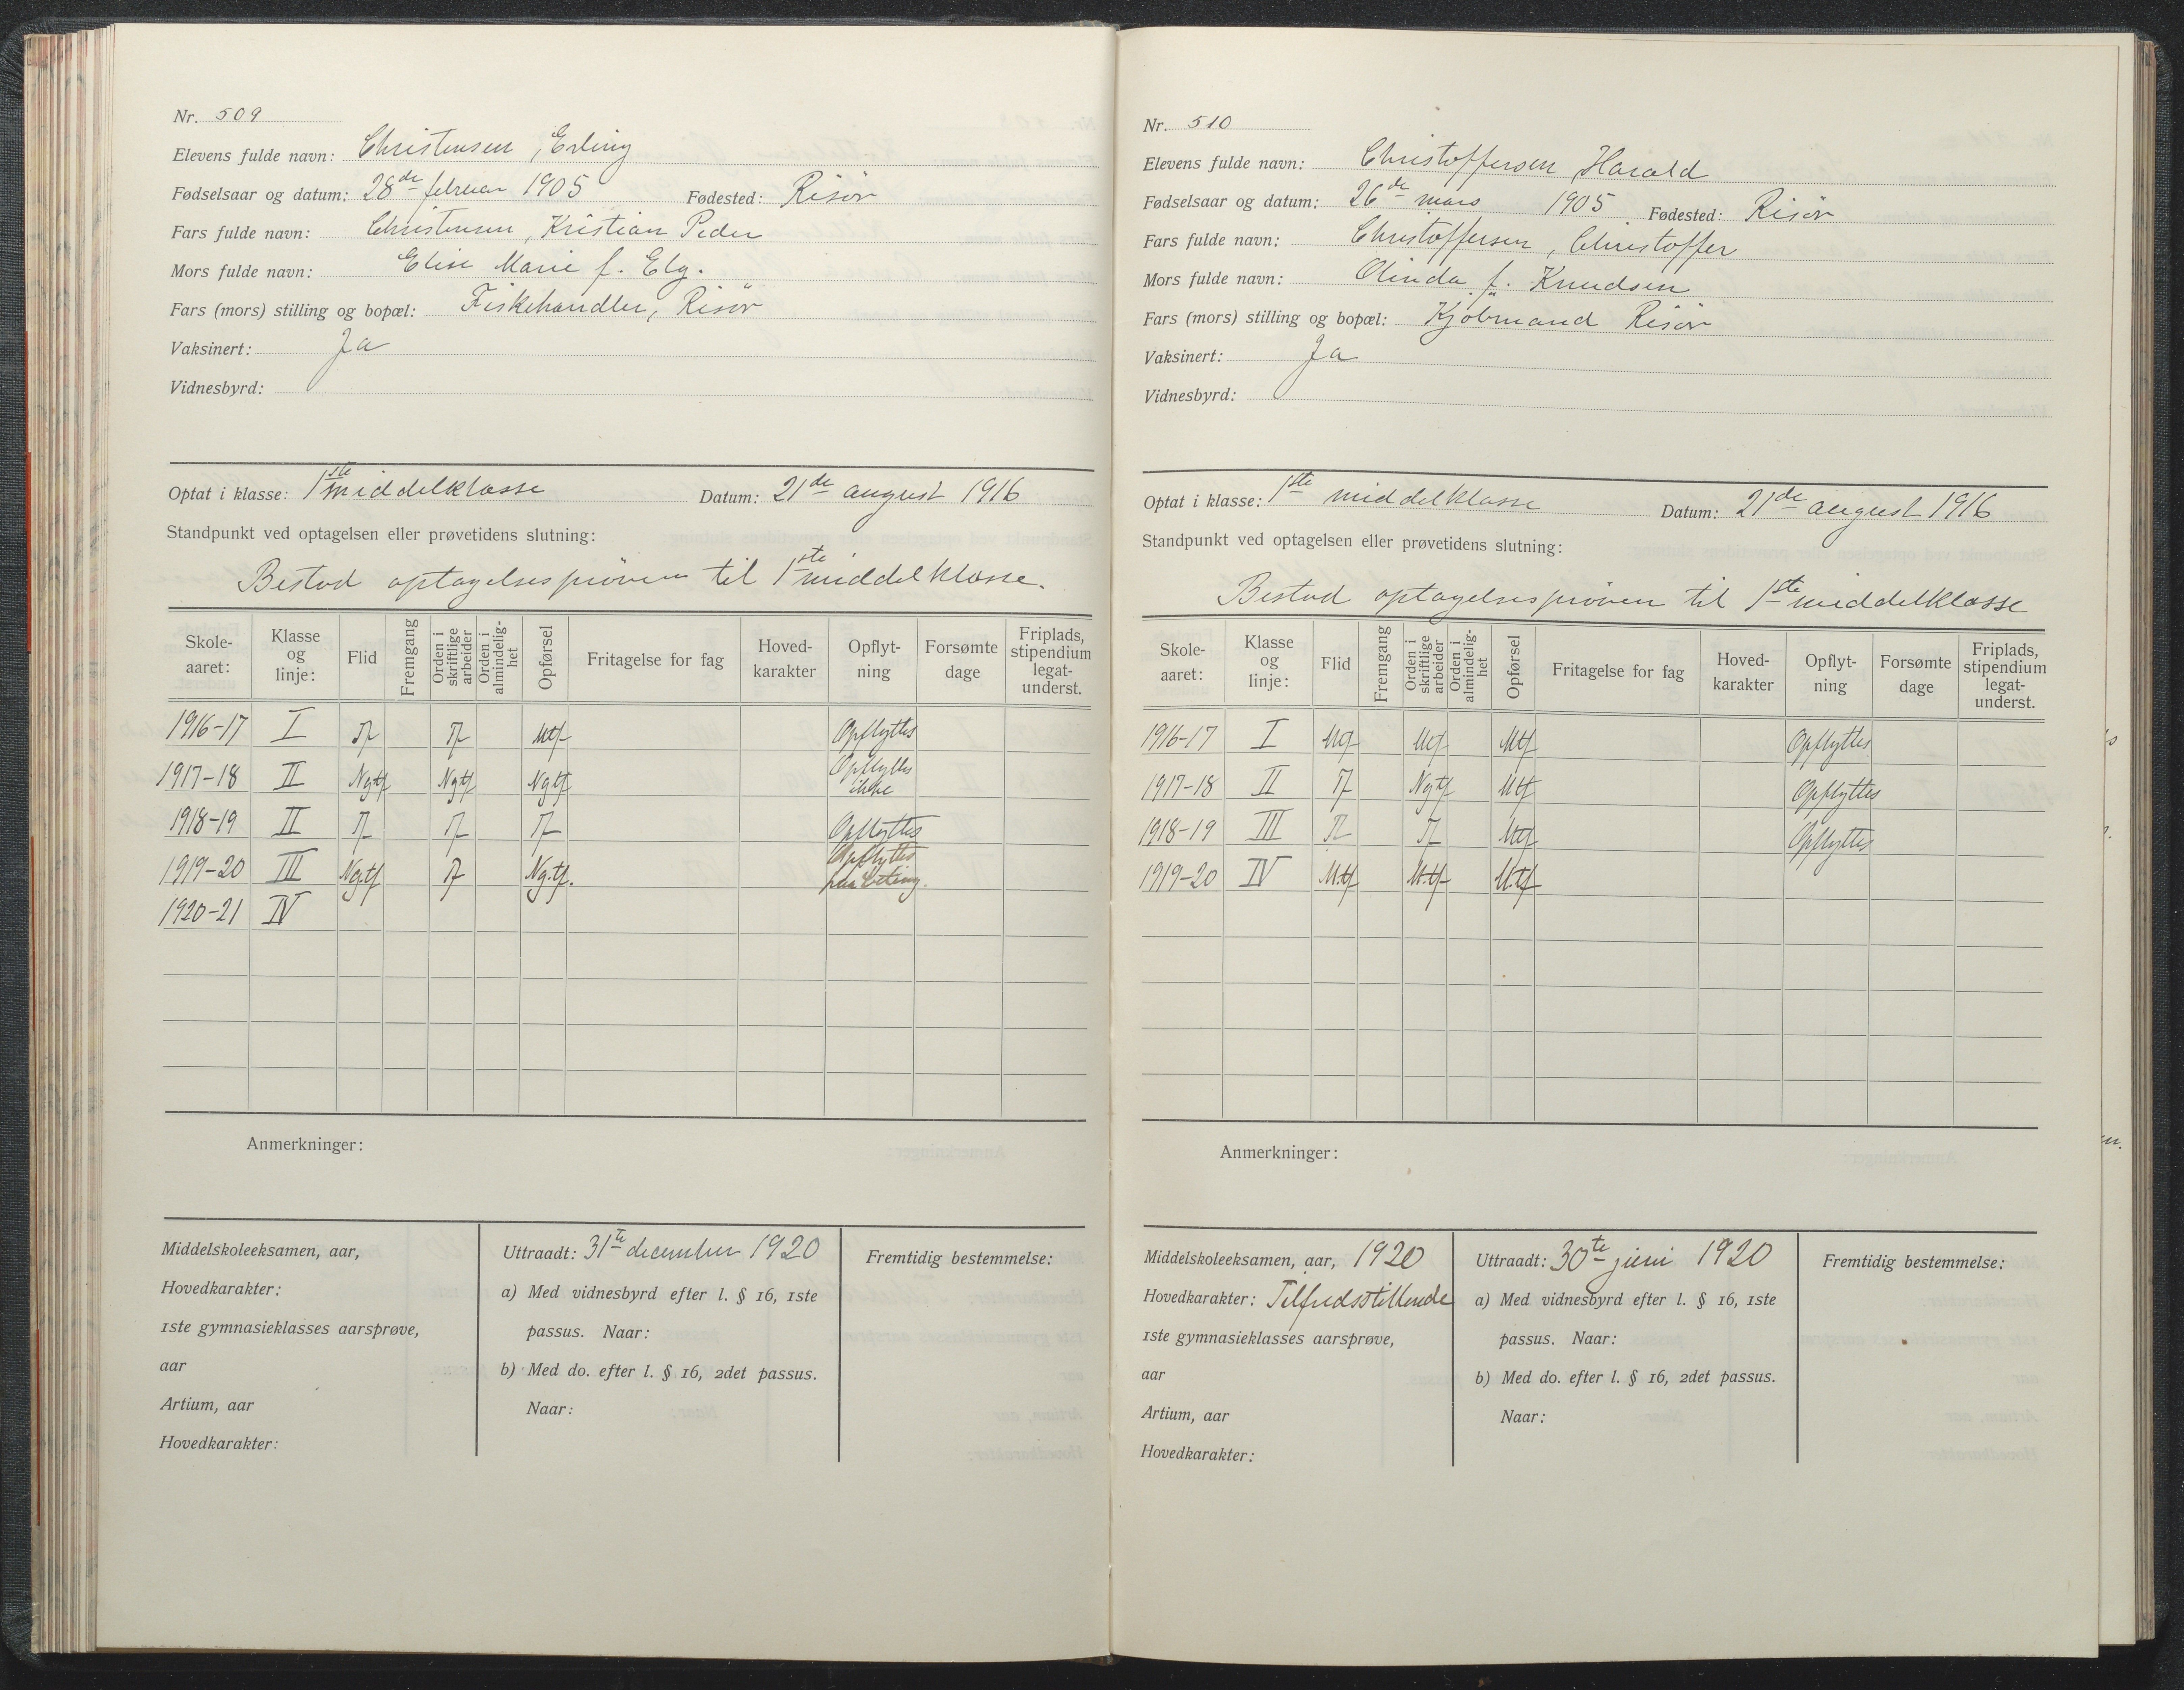 Nr. 509
Elevens fulde navn: Christensen, Erling
Fødselsaar og datum: 28de februar 1905 Fødested: Risör
Fars fulde navn: Christensen, Kristian Peder
Mors fulde navn: Elise Marie f. Elg.
Fars (mors) stilling og bopæl: Fiskehandler, Risör
Vaksinert: Ja
Vidnesbyrd:
Optat i klasse: 1ste middelklasse Datum: 21de august 1916
Standpunkt ved optagelsen eller prøvetidens slutning:
Bestod optagelsespröven til 1ste middelklasse.
Skole-aaret: Klasse og linje: Flid Fremgang Orden i skriftlige arbeider Orden i almindelig-het Opførsel Fritagelse for fag Hoved-karakter Opflyt-ning Forsømte dage Friplads, stipendium legat-underst.
1916-17 I Tf Tf Mtf Opflyttes
1917-18 II Ngtf Ngtf Ngtf Opflyttes ikke
1918-19 II Tf Tf Tf Opflyttes
1919-20 III Ng.tf Tf Ng.tf. Opflyttes paa beting.
1920-21 IV
Anmerkninger:
Middelskoleeksamen, aar,
Hovedkarakter:
1ste gymnasieklasses aarsprøve,
aar
Artium, aar
Hovedkarakter:
Uttraadt: 31te december 1920
a) Med vidnesbyrd efter l. § 16, 1ste
passus. Naar:
b) Med do. efter l. § 16, 2det passus.
Naar:
Fremtidig bestemmelse:
Nr. 510
Elevens fulde navn: Christoffersen, Harald
Fødselsaar og datum: 26de mars 1905 Fødested: Risör
Fars fulde navn: Christoffersen, Christoffer
Mors fulde navn: Olinda f. Knudsen
Fars (mors) stilling og bopæl: Kjöbmand Risör
Vaksinert: Ja
Vidnesbyrd:
Optat i klasse: 1ste middelklasse Datum: 21de august 1916
Standpunkt ved optagelsen eller prøvetidens slutning:
Bestod optagelsespröven til 1ste middelklasse
Skole-aaret: Klasse og linje: Flid Fremgang Orden i skriftlige arbeider Orden i almindelig-het Opførsel Fritagelse for fag Hoved-karakter Opflyt-ning Forsømte dage Friplads, stipendium legat-underst.
1916-17 I Mtf Opflyttes
1917-18 II Tf Ngtf Mtf Opflyttes
1918-19 III Tf Tf Mtf Opflyttes
1919-20 IV M.tf M.tf M.tf
Anmerkninger:
Middelskoleeksamen, aar, 1920
Hovedkarakter: Tilfredsstillende
1ste gymnasieklasses aarsprøve,
aar
Artium, aar
Hovedkarakter:
Uttraadt: 30te juni 1920
a) Med vidnesbyrd efter l. § 16, 1ste
passus. Naar:
b) Med do. efter l. § 16, 2det passus.
Naar:
Fremtidig bestemmelse: